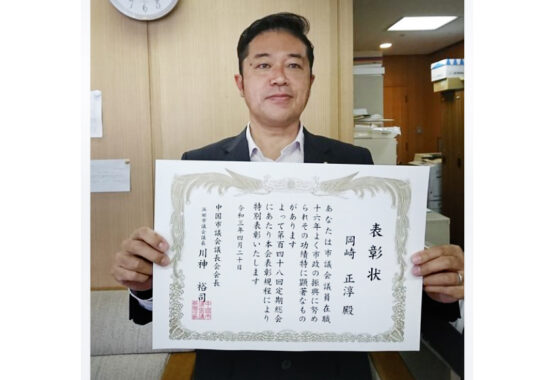 表彰状
岡崎 正淳 殿
あなたは市議会議員在職
十六年よく市政の振興に努め
られその功績特に顕著なもの
があります
よって第百四十八回定期総会
にあたり本会表彰規程により
特別表彰いたします
令和三年四月二十日
中国市議会議長会会長
浜田市議会議長 川神 裕司